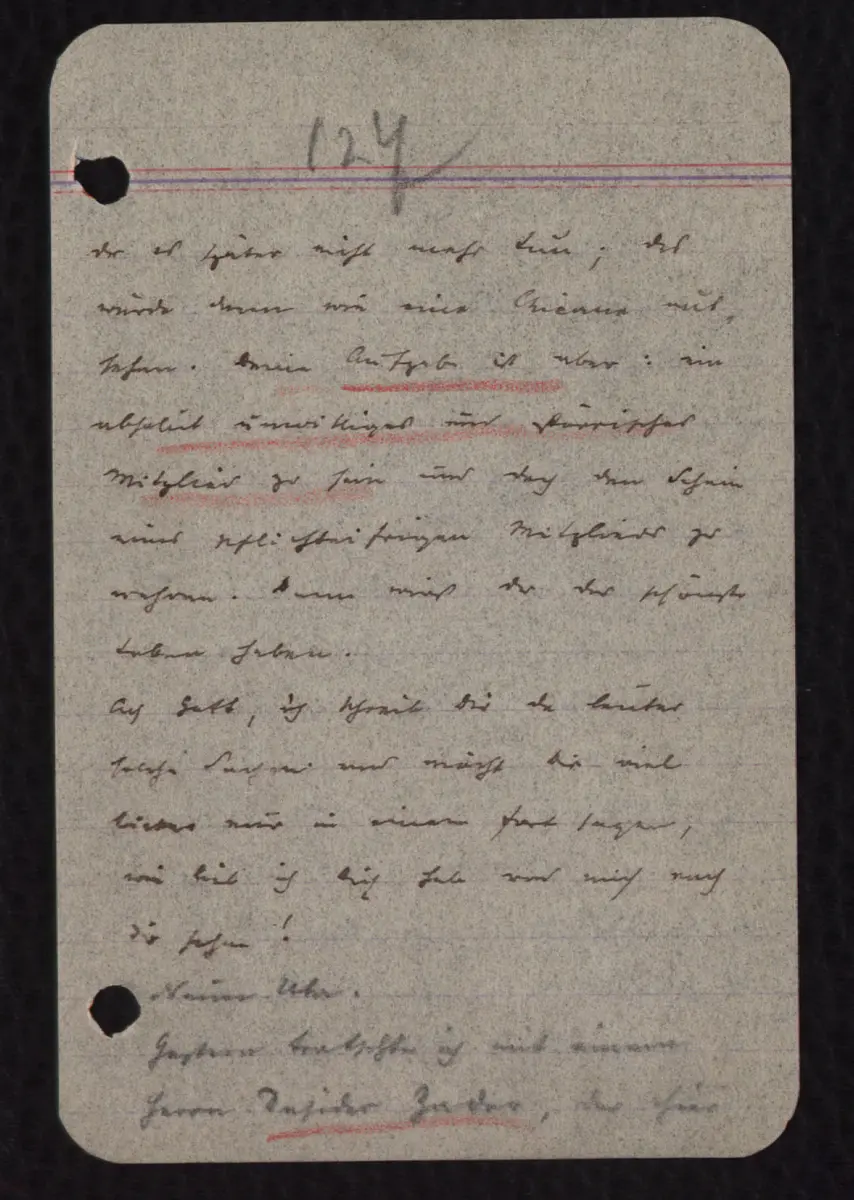 124
du es später nicht mehr tun; das
würde dann wie eine Chicane aus-
sehen. Deine Aufgabe ist aber: ein
absolut unwilliges und störrisches
Mitglied zu sein und doch den Schein
eines pflichteifrigen Mitglieds zu
wahren. Dann wirst du das schönste
Leben haben.
Ach Gott, ich schreib Dir da lauter
solche Sachen und möcht Dir viel
lieber nur in einem fort sagen,
wie lieb ich Dich habe und mich nach
Dir sehne!
Neun Uhr.
Gestern tratschte ich mit einem
Herrn Desider Zador, der hier